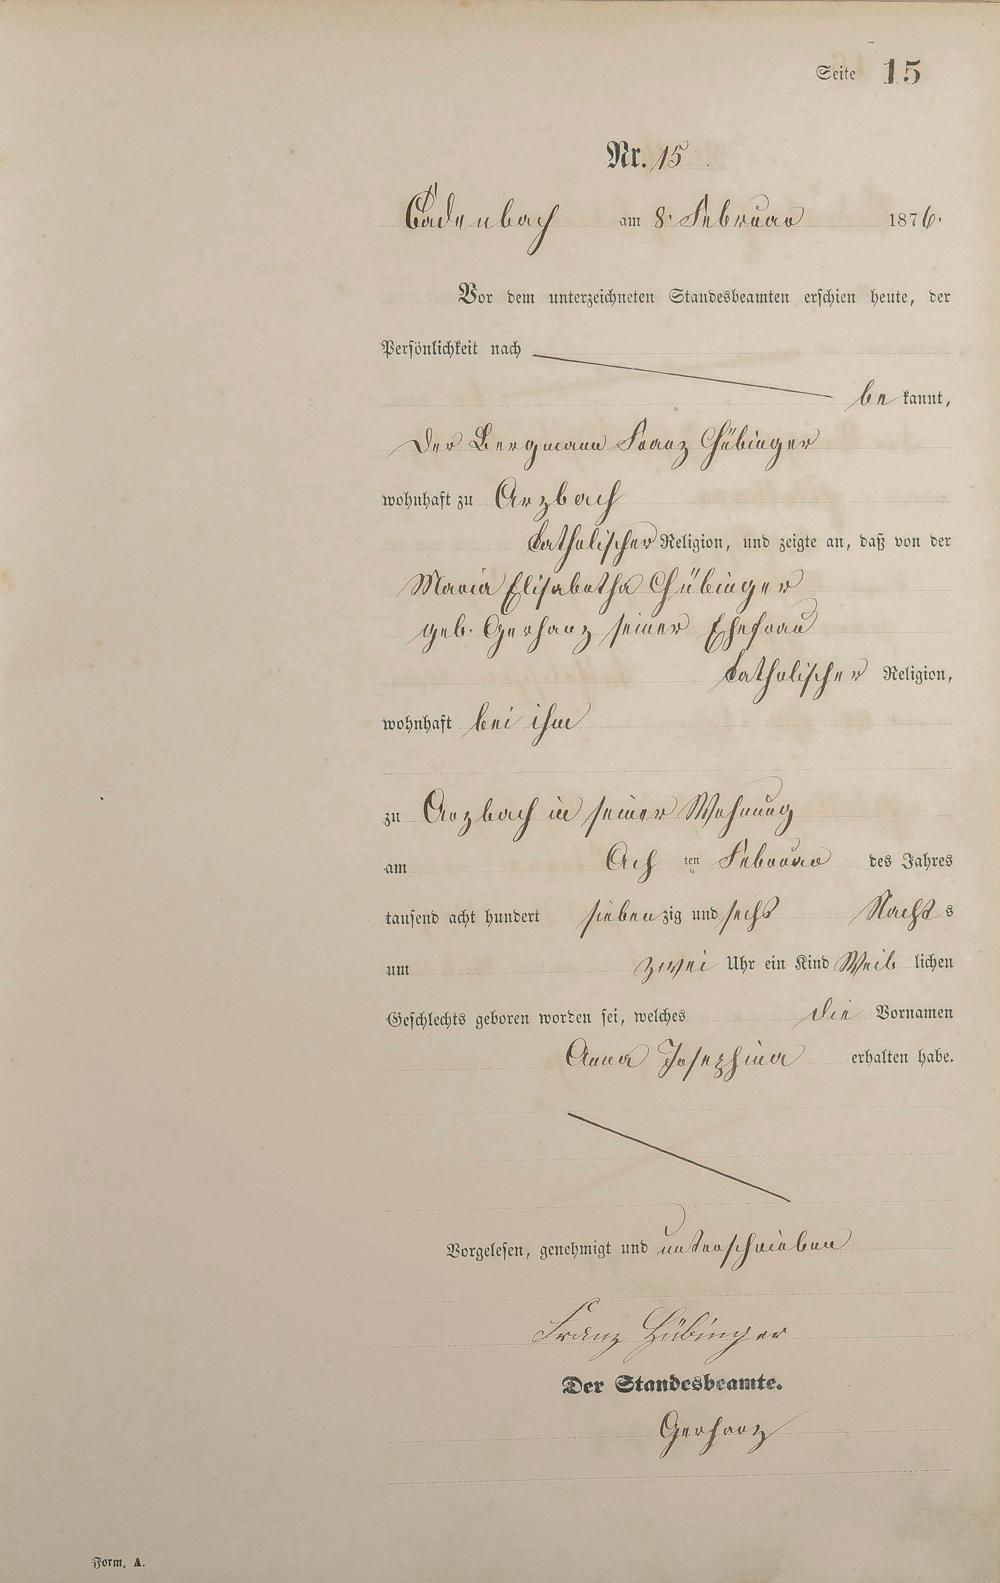 Seite 15
Nr. 15
Cadenbach am 8. Februar 1876.
Vor dem unterzeichneten Standesbeamten erschien heute, der
Persönlichkeit nach
be kannt,
der Bergmann Franz Hübinger
wohnhaft zu Arzbach
katholischer Religion, und zeigte an, daß von der
Maria Elisabetha Hübinger
geb. Gerharz seiner Ehefrau
katholischer Religion,
wohnhaft bei ihm
zu Arzbach in seiner Wohnung
am Ach ten Februar des Jahres
tausend acht hundert sieben zig und sechs Nacht s
um zwei Uhr ein Kind Weib lichen
Geschlechts geboren worden sei, welches die Vornamen
Anna Josephina erhalten habe.
Vorgelesen, genehmigt und unterschrieben
Franz Hübinger
Der Standesbeamte.
Gerharz
Form. A.